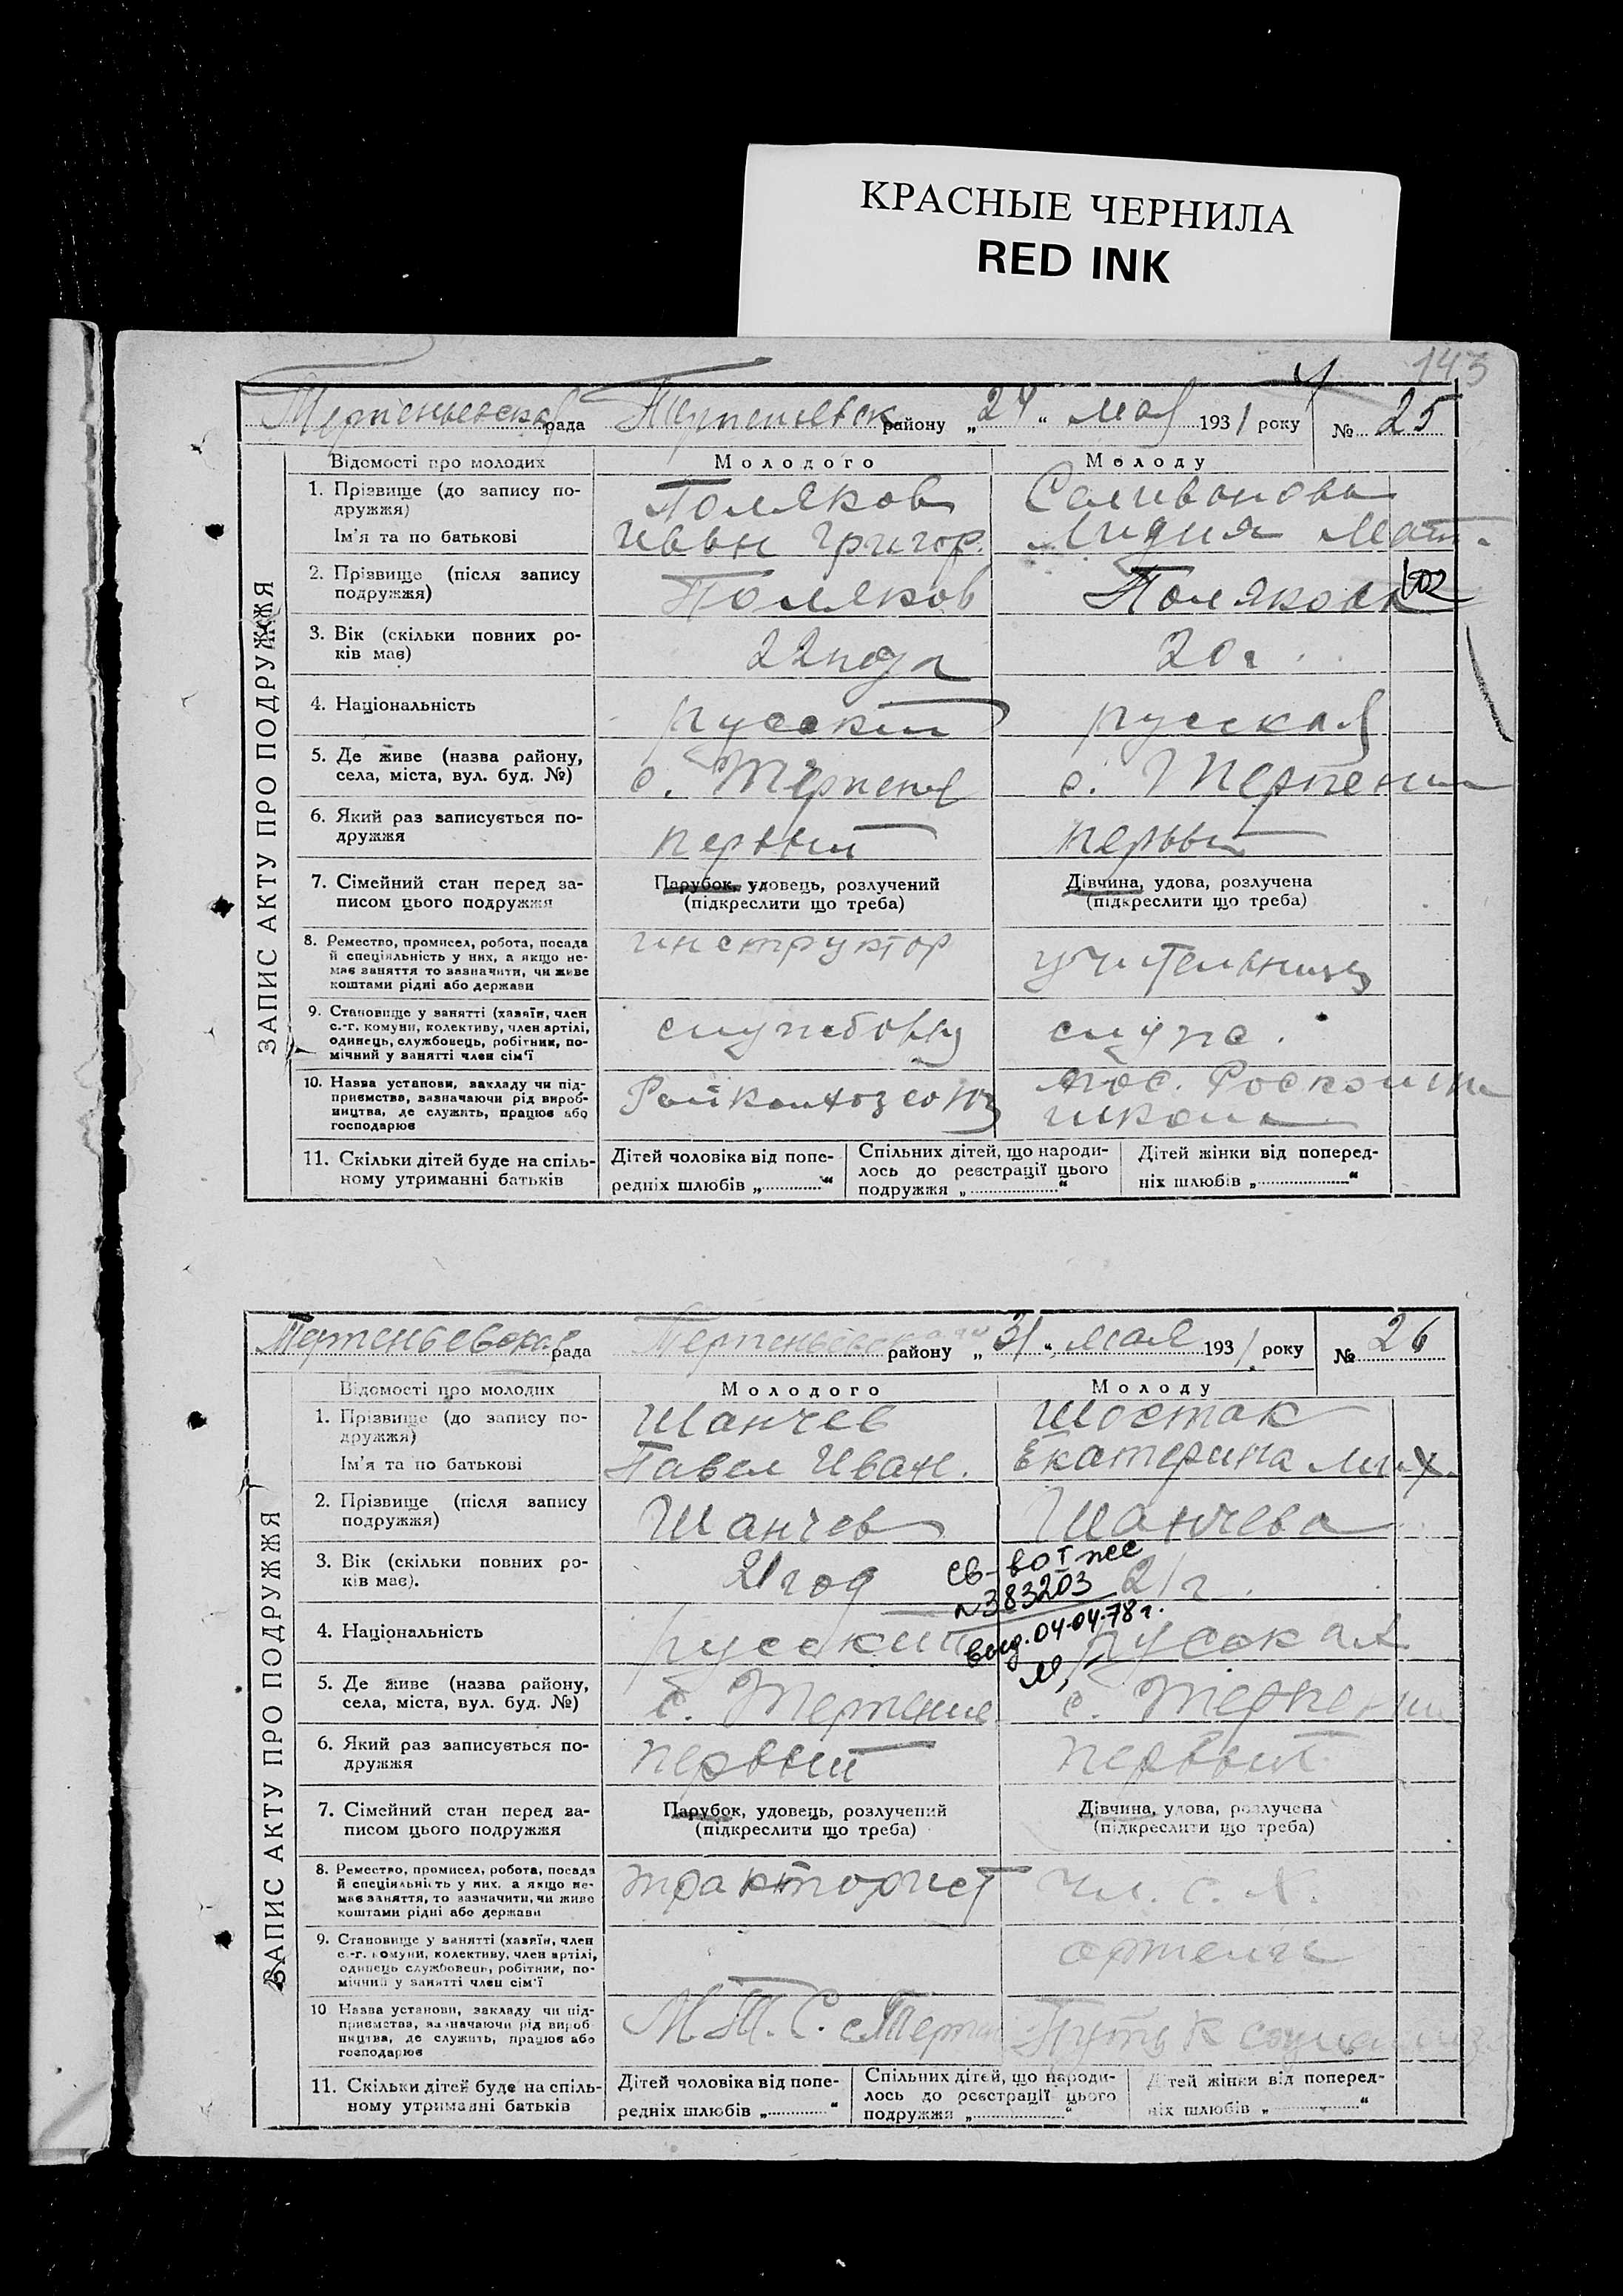 КРАСНЫЕ ЧЕРНИЛА
RED INK
143
рада району „24“ мая 1931 року № 25
ЗАПИС АКТУ ПРО ПОДРУЖЖЯ
Відомості про молодих Молодого Молоду
1. Прізвище (до запису по-
дружжя) Поляков Селиванова
Ім'я та по батькові Иван Григор. Лидия Мат.
2. Прізвище (після запису
подружжя) Поляков Полякова
3. Вік (скільки повних ро-
ків має) 22 года 20 г.
4. Національність русский русская
5. Де живе (назва району,
села, міста, вул. буд. №) с. Терпение с. Терпение
6. Який раз записується по-
дружжя первый первый
7. Сімейний стан перед за-
писом цього подружжя
Парубок, удовець, розлучений
(підкреслити що треба)
Дівчина, удова, розлучена
(підкреслити що треба)
8. Ремество, промисел, робота, посада
й спеціяльність у них, а якщо не-
має заняття то зазначити, чи живе
коштами рідні або держави
инструктор учительница
9. Становище у занятті (хазяїн, член
с.-г. комуни, колективу, член артілі,
одинець, службовець, робітник, по-
мічний у занятті член сім'ї
служ.
10. Назва установи, закладу чи під-
приємства, зазначаючи рід вироб-
ництва, де служить, працює або
господарює
Райколхозсоюз школа
11. Скільки дітей буде на спіль-
ному утриманні батьків
Дітей чоловіка від попе-
редніх шлюбів „ “
Спільних дітей, що народи-
лось до реєстрації цього
подружжя „ “
Дітей жінки від поперед-
ніх шлюбів „ “
рада району „31“ мая 1931 року № 26
ЗАПИС АКТУ ПРО ПОДРУЖЖЯ
Відомості про молодих Молодого Молоду
1. Прізвище (до запису по-
дружжя) Шанчев Шостак
Ім'я та по батькові Павел Иван. Екатерина Мих.
2. Прізвище (після запису
подружжя) Шанчев Шанчева
3. Вік (скільки повних ро-
ків має). 21 год 21 г.
св-во I
№383203
выд. 04.04.78 г.
4. Національність русский русская
5. Де живе (назва району,
села, міста, вул. буд. №) с. Терпение с. Терпение
6. Який раз записується по-
дружжя первый первый
7. Сімейний стан перед за-
писом цього подружжя
Парубок, удовець, розлучений
(підкреслити що треба)
Дівчина, удова, розлучена
(підкреслити що треба)
8. Ремество, промисел, робота, посада
й спеціяльність у них, а якщо не-
має заняття, то зазначити, чи живе
коштами рідні або держави
тракторист чл. с. х.
9. Становище у занятті (хазяїн, член
с.-г. комуни, колективу, член артілі,
одинець службовець, робітник, по-
мічний у занятті член сім'ї
артели
10 Назва установи, закладу чи під-
приємства, зазначаючи рід вироб-
ництва, де служить, працює або
господарює
М.Т.С. Путь к
11. Скільки дітей буде на спіль-
ному утриманні батьків
Дітей чоловіка від попе-
редніх шлюбів „ “
Спільних дітей, що народи-
лось до реєстрації цього
подружжя „ “
Дітей жінки від поперед-
ніх шлюбів „ “